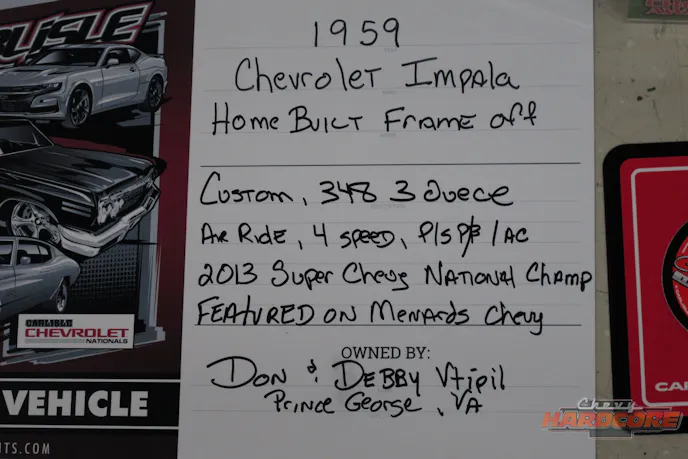 1959
Chevrolet Impala
Home Built Frame off
Custom, 348 3 Duece
Air Ride, 4 speed, P/S P/B / AC
2013 Super Chevy National Champ
Featured on Menards Chevy
OWNED BY:
Don & Debby
Prince George, VA
CARLISLE
CHEVROLET
NATIONALS
VEHICLE
TS.COM
Chevy
HARDCORE